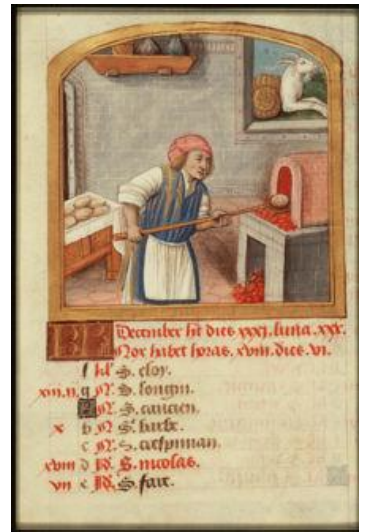 December ht dies xxxj. luna. xxx.
Nox habet horas. xviii. dies. vi.
f kl S. eloy.
xiii. n. g N. S. longin.
A N. S. cancien.
x b N. Se barbe.
c N. S. crespinian.
xviii d N. S. nicolas.
vii e N. S. fare.